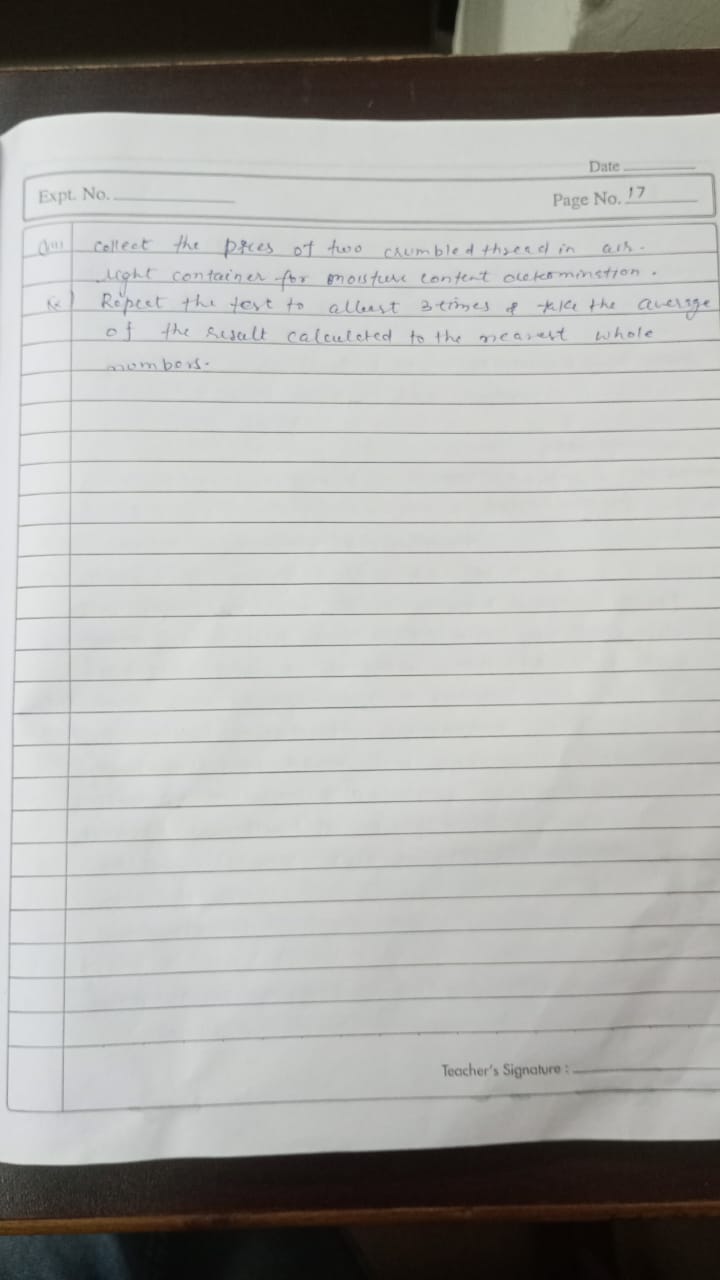 Date
Expt. No.
Page No. 17
collect the pices of two crumbled thread in air-
light container for moisture content determinstion.
Repeet the test to atleast 3 times & take the average
of the result calculeted to the nearest whole
numbers.
Teacher's Signature :